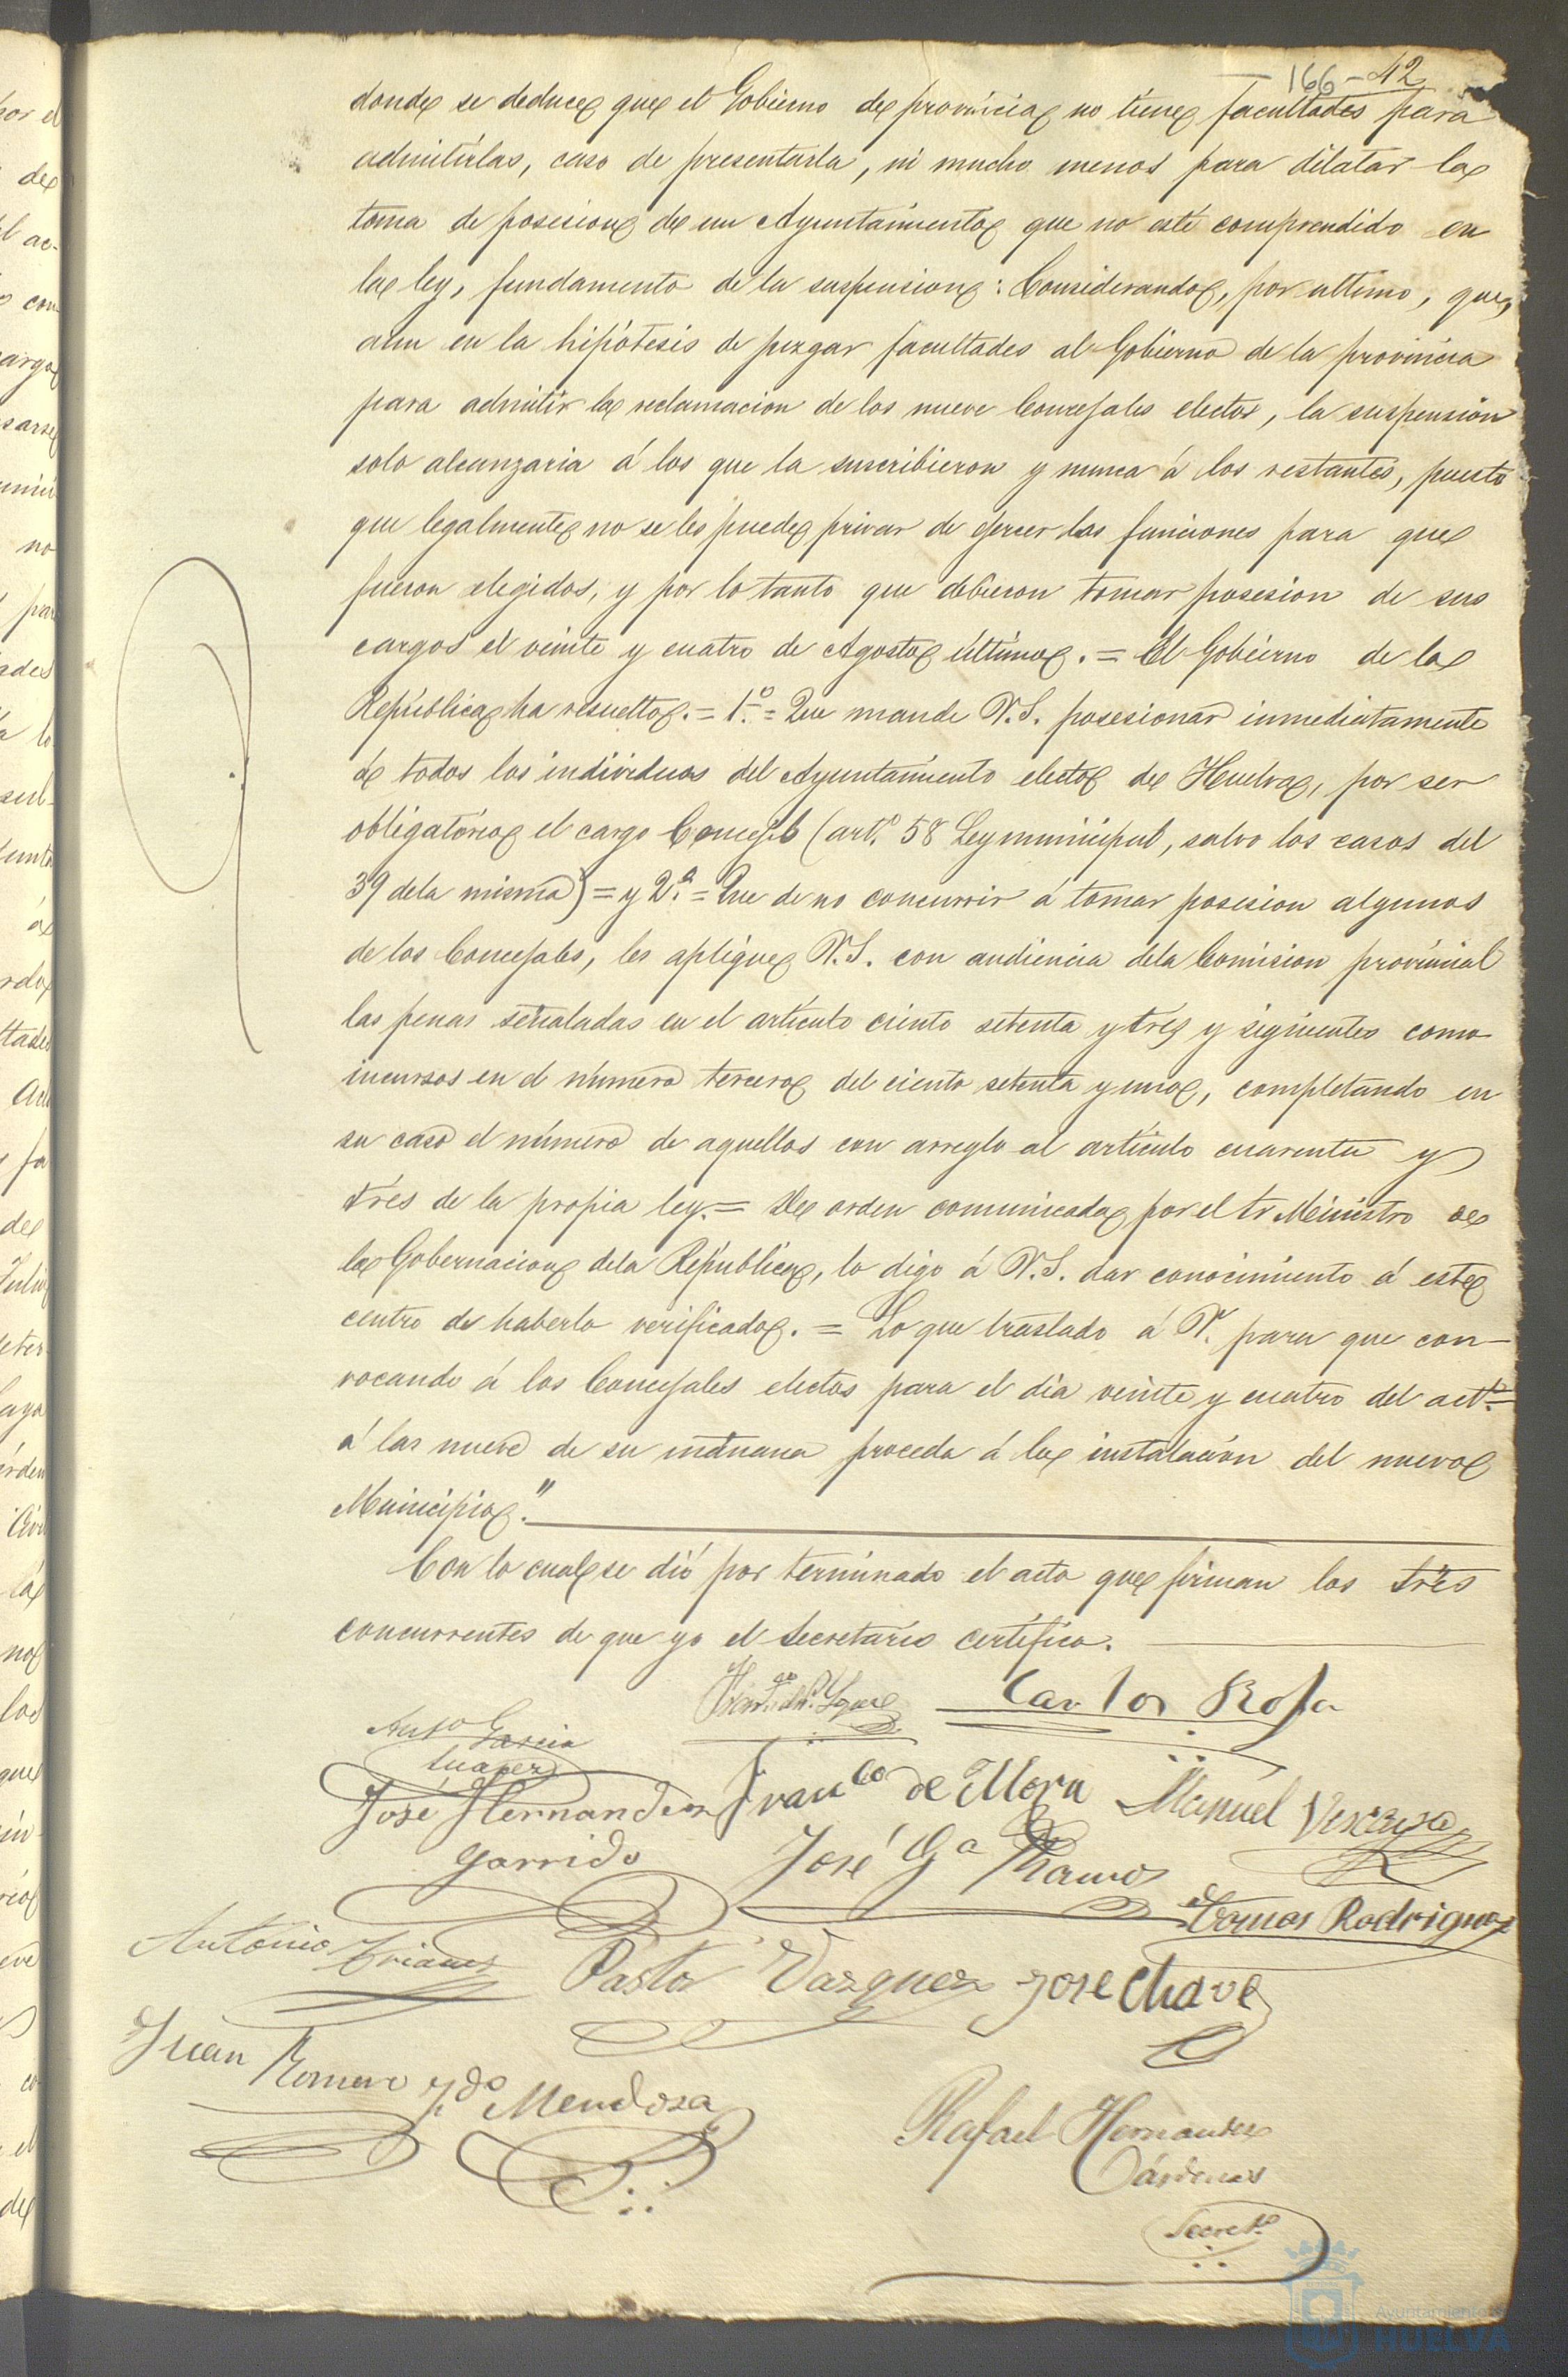 166 - 42
donde se deduce que el Gobierno de provincia no tiene facultades para
admitirlas, caso de presentarla, ni mucho menos para dilatar la
toma de posesion de un Ayuntamiento que no esté comprendido en
la ley, fundamento de la suspension: Considerando, por ultimo, que,
aun en la hipótesis de juzgar facultades al Gobierno de la provincia
para admitir la reclamacion de los nueve Concejales electos, la suspensión
solo alcanzaria á los que la suscribieron y nunca á los restantes, puesto
que legalmente no se les puede privar de ejercer las funciones para que
fueron elegidos, y por lo tanto que debieron tomar posesion de sus
cargos el veinte y cuatro de Agosto último. = El Gobierno de la
República ha resuelto. = 1.º = Que mande V.S. posesionar inmediatamente
á todos los individuos del Ayuntamiento electo de Huelva, por ser
obligatorio el cargo Concejil (art.º 58 Ley municipal, salvo los casos del
39 de la misma) = y 2.ª = Que de no concurrir á tomar posesion algunos
de los Concejales, les aplique V.S. con audiencia dela Comision provincial
las penas señaladas en el artículo ciento setenta y tres y siguientes como
incursos en el número tercero del ciento setenta y uno, completando en
su caso el número de aquellos con arreglo al artículo cuarenta y
tres de la propia ley. = De orden comunicada por el Sr Ministro de
la Gobernacion dela República, lo digo á V.S. dar conocimiento á este
centro de haberlo verificado. = Lo que traslado á V. para que con-
vocando á los Concejales electos para el dia veinte y cuatro del act.º
á las nueve de su mañana proceda á la instalación del nuevo
Municipio."
Con lo cual se dió por terminado el acto que firman los tres
concurrentes de que yo el Secretario certifico.
Carlos Rosa
Ant.º Garcia
Suarez
José Hernandez Fran.co de Mora Manuel
Garrido José G.ª Ramos
Tomas Rodriguez
Antonio Trianes Pastor Vazquez Jose Chave
Juan Romero
Y.do Mendoza
Rafael Hernandez
Cárdenas
Secret.º
Ayuntamiento de
HUELVA